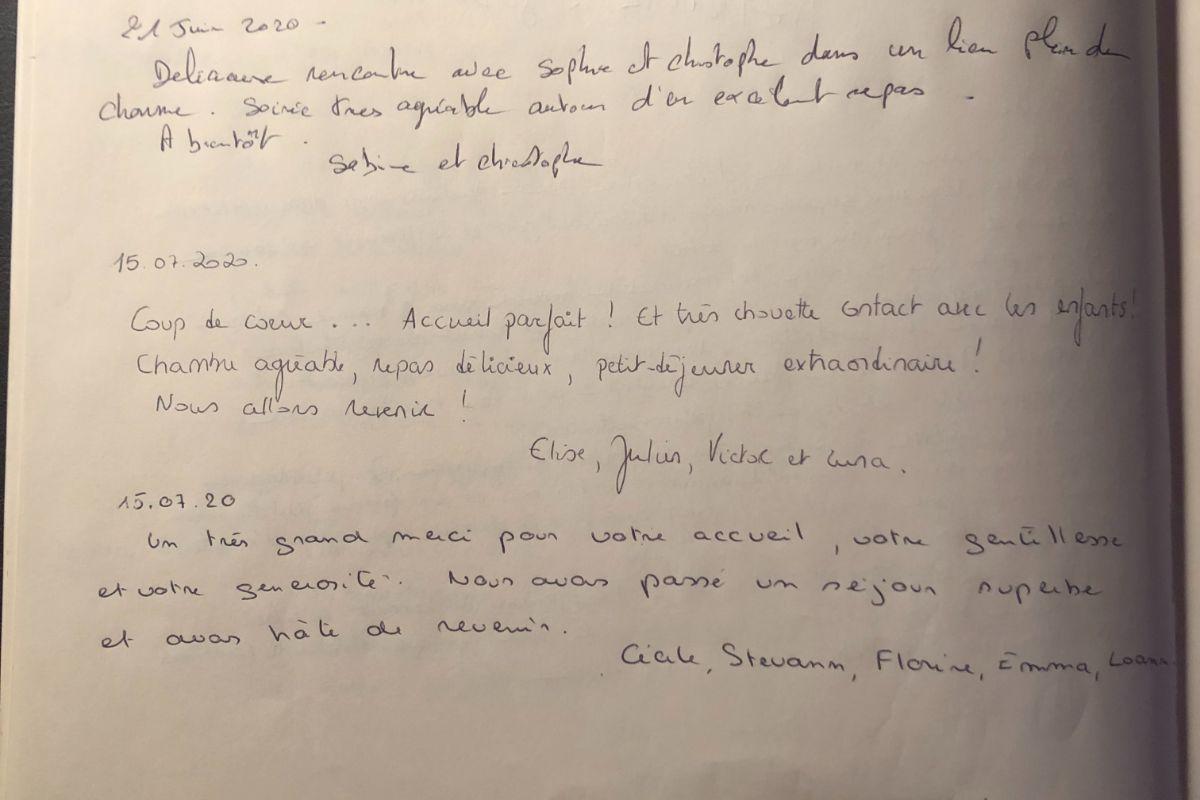 21 Juin 2020 -
Delicieuse rencontre avec Sophie et christophe dans un lieu plein de
charme. Soirée très agréable autour d'en excelent repas.
A bientôt.
Sabine et christophe
15.07.2020.
Coup de coeur ... Accueil parfait ! Et très chouette contact avec les enfants!
Chambre agréable, repas délicieux, petit-déjeuner extraordinaire !
Nous allons revenir !
Elise, Julien, Victor et Luna.
15.07.20
Un très grand merci pour votre accueil, votre gentillesse
et votre generosité. Nous avons passé un séjour superbe
et avons hâte de revenir.
Cécile, Stevann, Florine, Emma, Loann